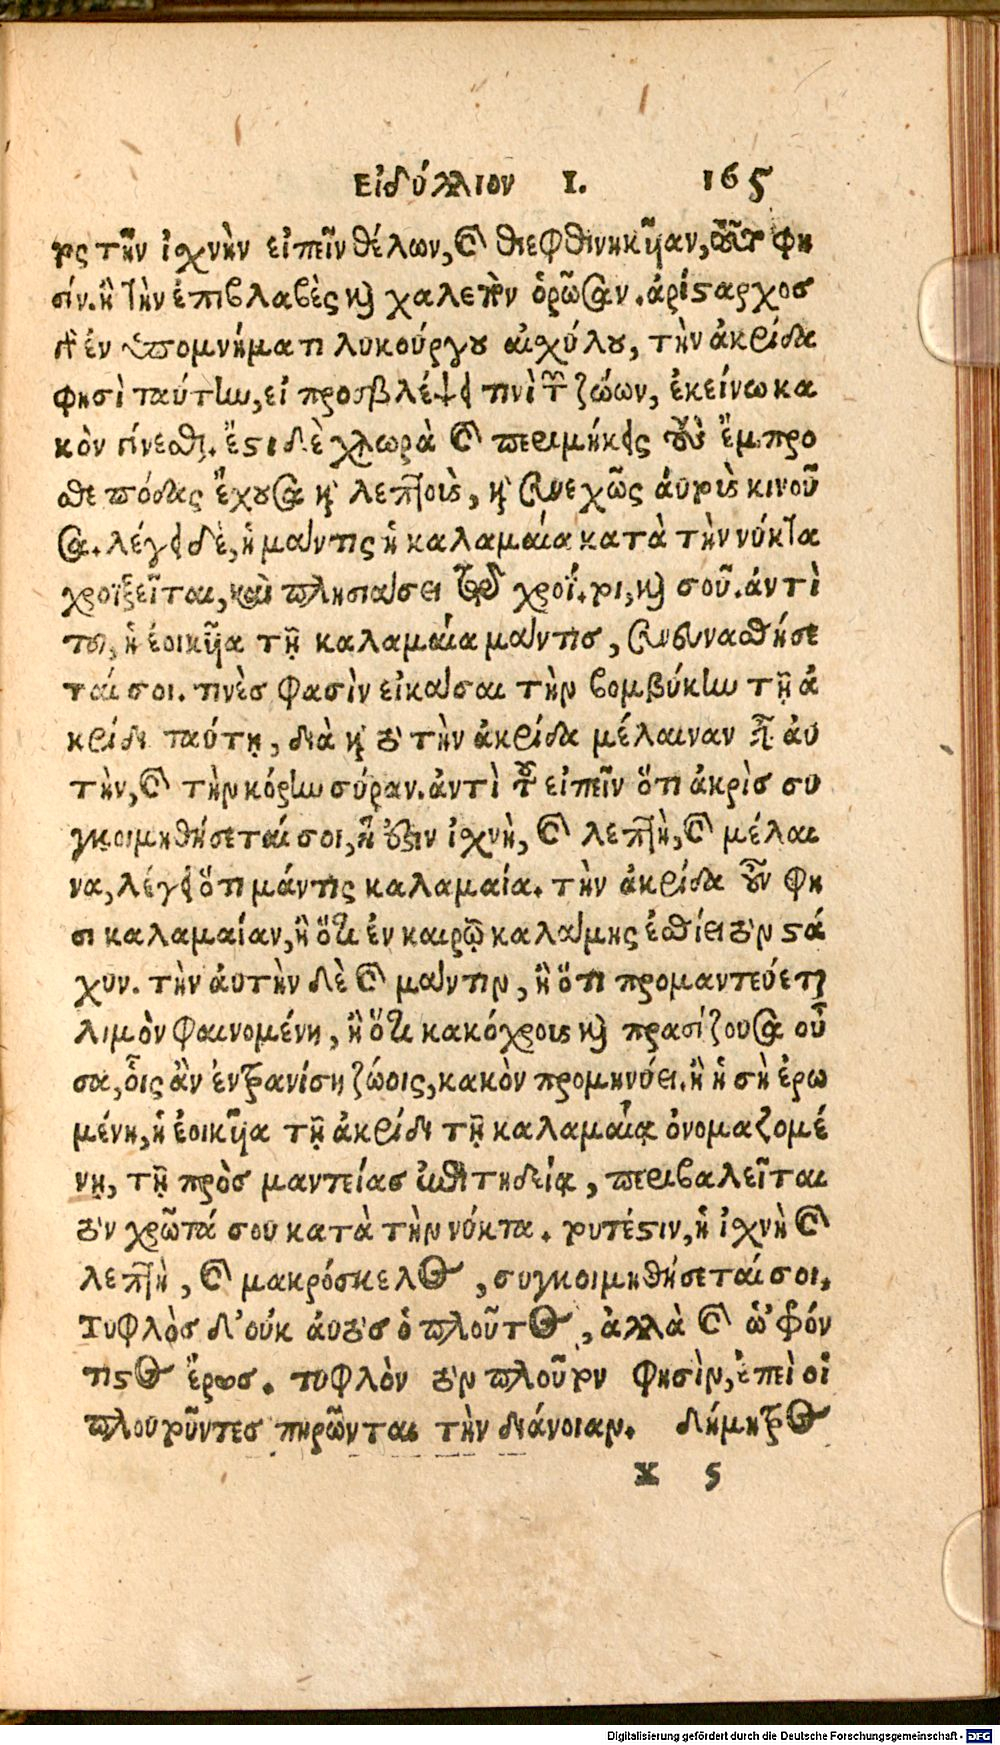 Εἰδύλλιον I. 165
τος τὴν ἰχνὴν εἰπεῖν θέλων, καὶ διεφθινηκῆαν, οὕτω φη
σίν. ἢ τὴν ἐπιβλαβὲς καὶ χαλεπὸν ὁρῶσαν. ἀρίσταρχος
δὲ ἐν ὑπομνήματι λυκούργου αἰχύλου, τὴν ἀκρίδα
φησὶ ταύτην, εἰ προσβλέψει τινὶ τῶν ζώων, ἐκείνω κα
κὸν γίνεσθαι. ἔστι δὲ χλωρὰ καὶ περιμήκης τοὺς ἔμπρο
σθε πόδας ἔχουσα καὶ λεπτοὺς, καὶ συνεχῶς αὐτοὺς κινοῦ
σα. λέγει δὲ, ἡ μάντις ἡ καλαμαία κατὰ τὴν νύκτα
χροϊξεῖται, καὶ πλησιάσει τῷ χροΐ. τοι, καὶ σοῦ. ἀντὶ
τοῦ, ἡ ἐοικῆα τῇ καλαμαία μάντις, συνευνασθήσε
ταί σοι. τινὲς φασὶν εἰκάσαι τὴν βομβύκην τῇ ἀ
κρίδι ταύτῃ, διὰ καὶ τὸ τὴν ἀκρίδα μέλαιναν εἶναι ἀυ
τὴν, καὶ τὴν κόρην σύραν. ἀντὶ τοῦ εἰπεῖν ὅτι ἀκρὶς συ
γκοιμηθήσεταί σοι, ἥ ἐστιν ἰχνὴ, καὶ λεπτὴ, καὶ μέλαι
να, λέγει ὅτι μάντις καλαμαία. τὴν ἀκρίδα οὖν φη
σι καλαμαίαν, ἢ ὅτι ἐν καιρῷ καλάμης ἐσθίει τὸν στά
χυν. τὴν ἀυτὴν δὲ καὶ μάντιν, ἢ ὅτι προμαντεύεται
λιμὸν φαινομένη, ἢ ὅτι κακόχρους καὶ πρασίζουσα οὖ
σα, οἷς ἂν ἐντρανίσῃ ζώοις, κακὸν προμηνύει. ἢ ἡ σὴ ἐρω
μένη, ἡ ἐοικῆα τῇ ἀκρίδι τῇ καλαμαίᾳ ὀνομαζομέ
νῃ, τῇ πρὸς μαντείας ἐπιτηδείᾳ, περιβαλεῖται
τὸν χρῶτά σου κατὰ τὴν νύκτα. τουτέστιν, ἡ ἰχνὴ καὶ
λεπτὴ, καὶ μακρόσκελος, συγκοιμηθήσεταί σοι.
Τυφλὸς δ' οὐκ ἀυτὸς ὁ πλοῦτος, ἀλλὰ καὶ ὡ' φρόν
τιστος ἔρως. τυφλὸν τὸν πλοῦτον φησὶν, ἐπὶ οἱ
πλουτοῦντες πηρῶνται τὴν διάνοιαν. Δήμητρος
X 5
Digitalisierung gefördert durch die Deutsche Forschungsgemeinschaft - DFG